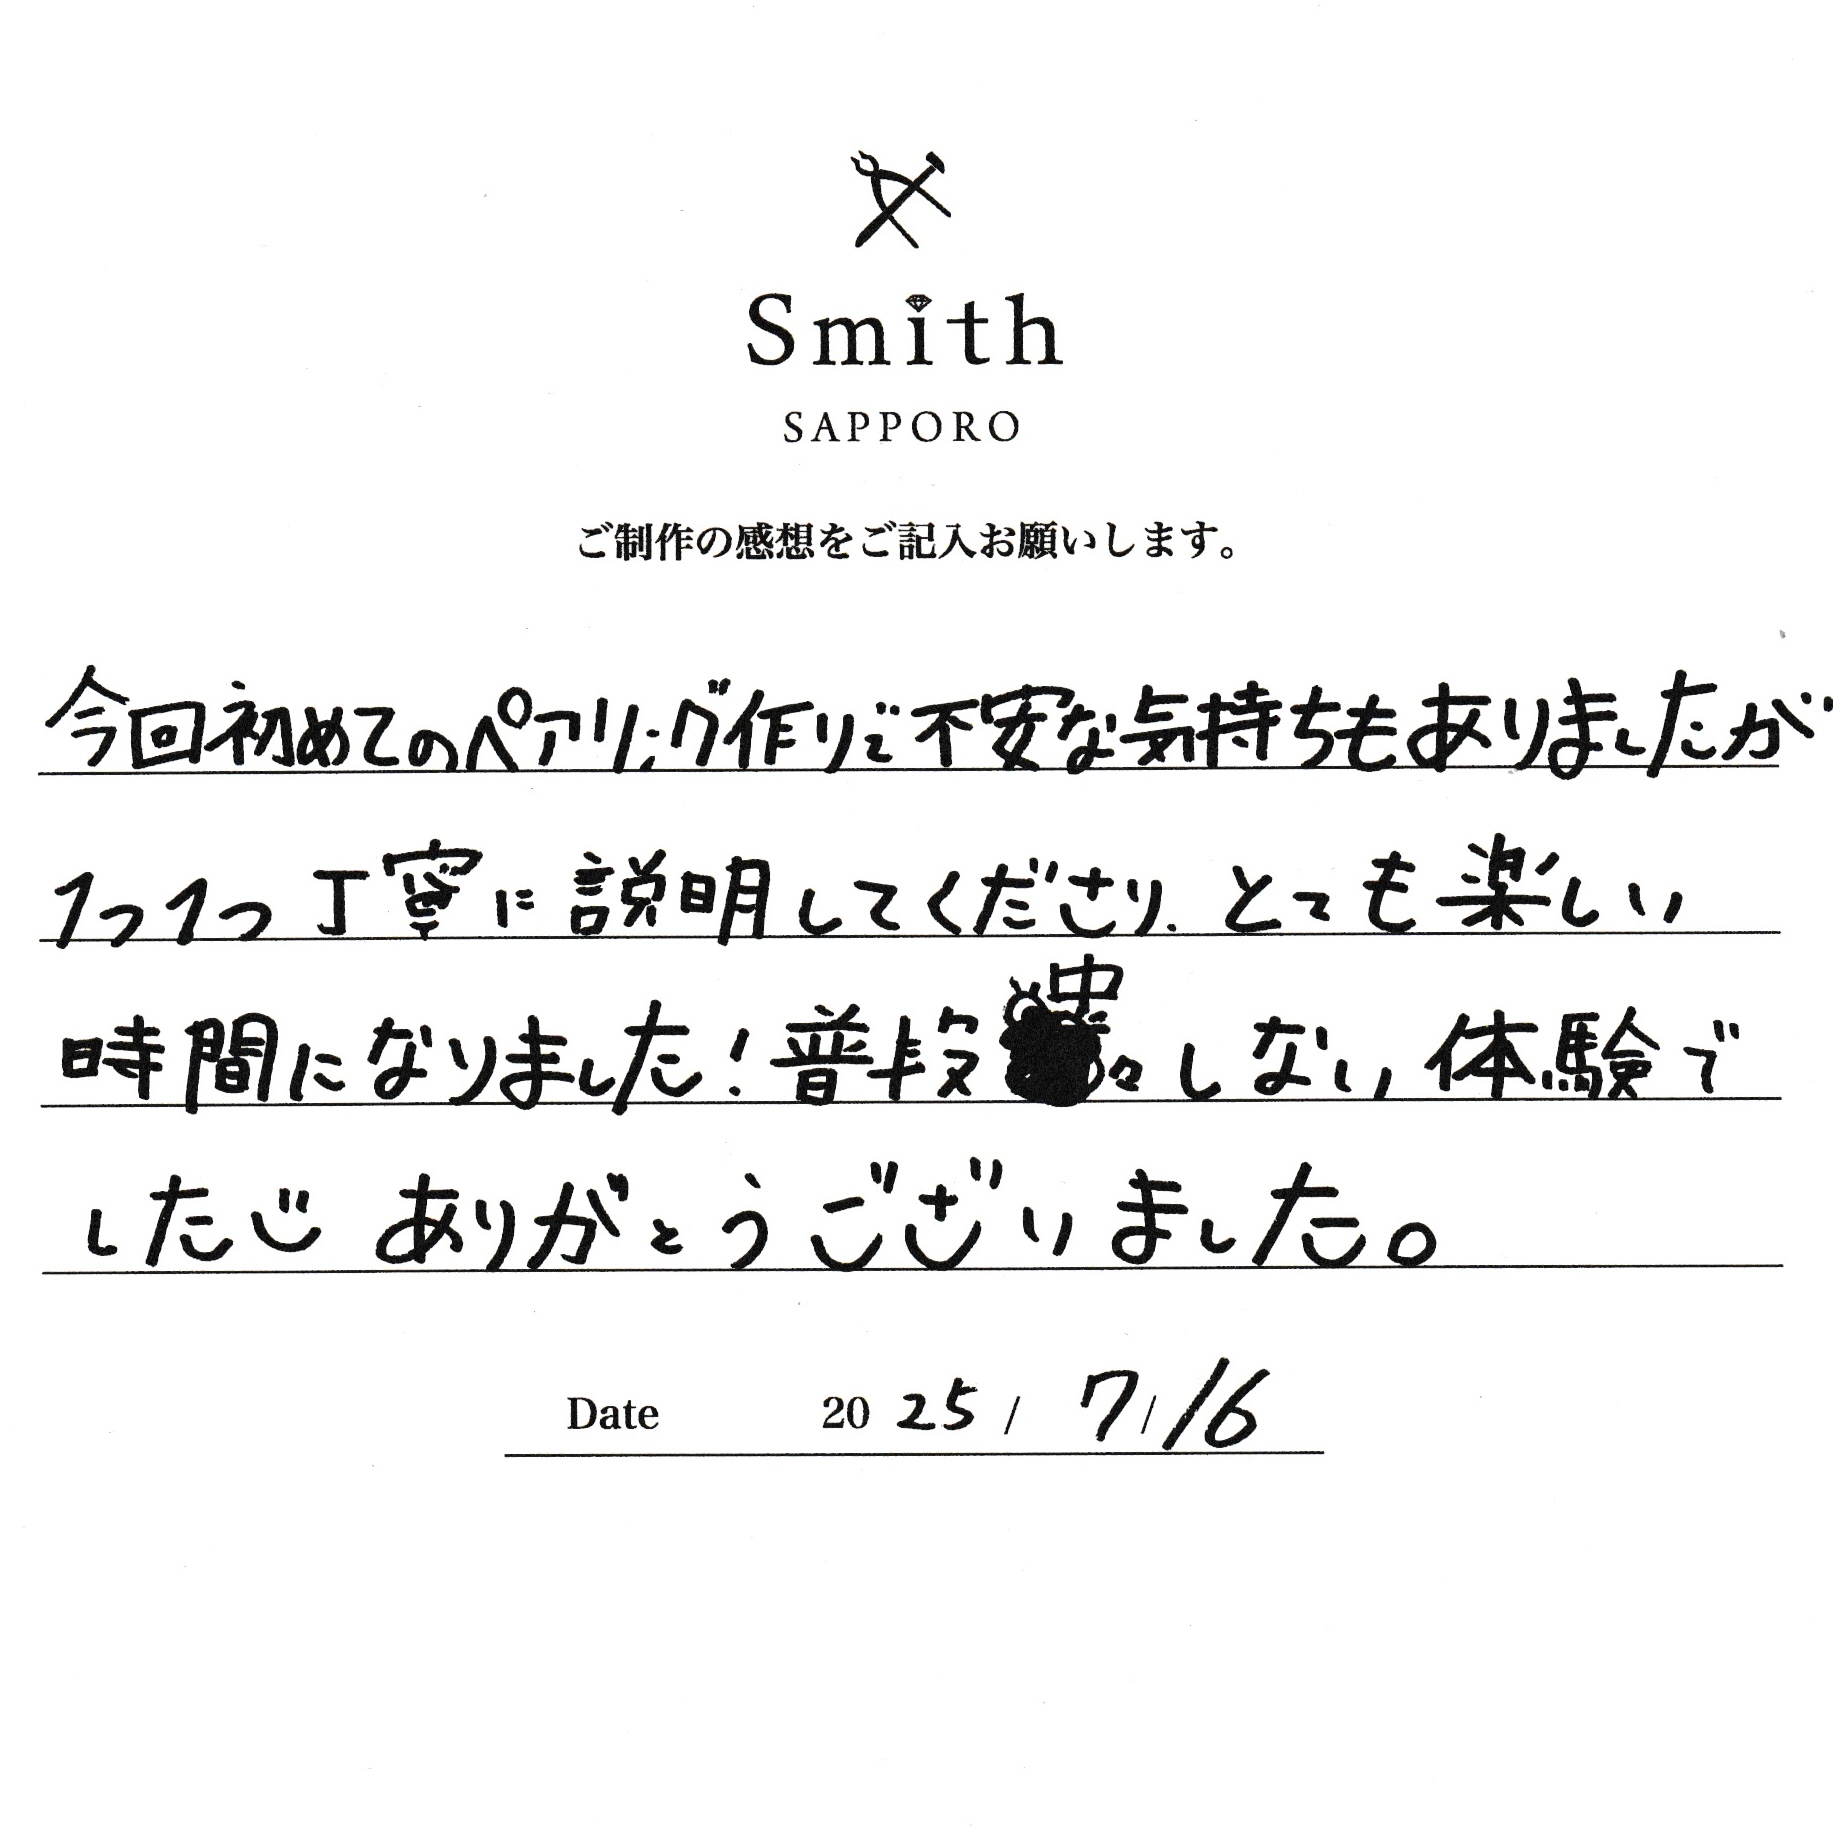 Smith
SAPPORO
ご制作の感想をご記入お願いします。
今回初めてのペアリング作りで不安な気持ちもありましたが
1つ1つ丁寧に説明してくださり、とても楽しい
時間になりました!普段中々しない体験で
した ありがとうございました。
Date 2025/7/16